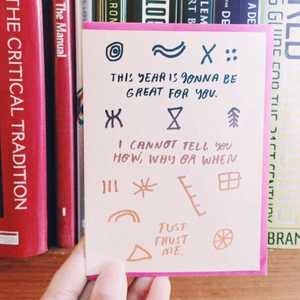 THE CRITICAL TRADITION
The Manual
THIS YEAR IS GONNA BE
GREAT FOR YOU.
I CANNOT TELL YOU
HOW, WHY OR WHEN
JUST
TRUST
ME.